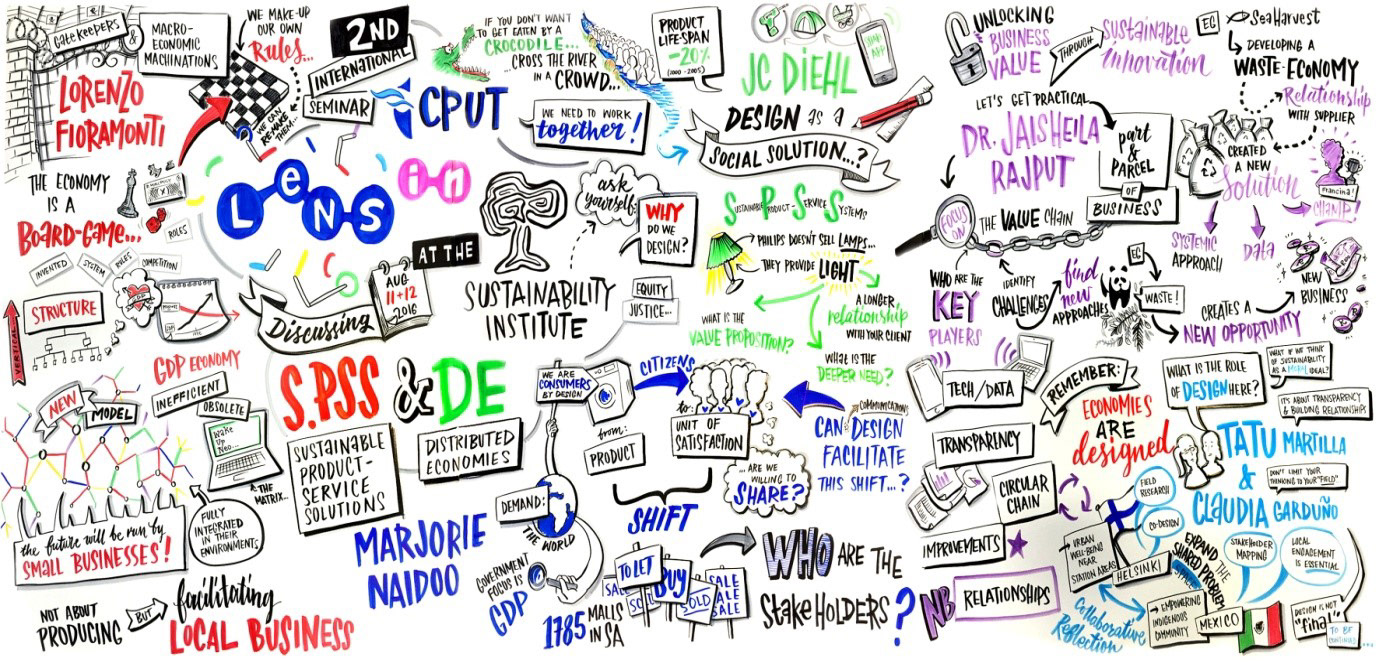 GATEKEEPERS
&
MACRO-
ECONOMIC
MACHINATIONS
WE MAKE-UP
OUR OWN
Rules...
WE CAN
RE-MAKE
THEM...
LORENZO
FIORAMONTI
THE ECONOMY
IS A
BOARD-GAME...
RULES
INVENTED
SYSTEM
RULES
COMPETITION
STRUCTURE
VERTICAL
GDP ECONOMY
INEFFICIENT
OBSOLETE
Wake
Up
Neo...
THE MATRIX...
NEW
MODEL
FULLY
INTEGRATED
IN THEIR
ENVIRONMENTS
the future will be run by
SMALL BUSINESSES!
NOT ABOUT
PRODUCING
BUT
facilitating
LOCAL BUSINESS
2ND
INTERNATIONAL
SEMINAR
CPUT
LeNS
in
AT THE
SUSTAINABILITY
INSTITUTE
AUG
11+12
2016
Discussing
S.PSS & DE
SUSTAINABLE
PRODUCT-
SERVICE
SOLUTIONS
DISTRIBUTED
ECONOMIES
IF YOU DON'T WANT
TO GET EATEN BY A
CROCODILE...
CROSS THE RIVER
IN A CROWD...
WE NEED TO WORK
together!
PRODUCT
LIFE-SPAN
-20%
(2000-2005)
JC DIEHL
APP
DESIGN as a
SOCIAL SOLUTION...?
ask
yourself
WHY
DO WE
DESIGN?
EQUITY
JUSTICE...
SUSTAINABLE PRODUCT-SERVICE SYSTEMS
PHILIPS DOESN'T SELL LAMPS...
THEY PROVIDE LIGHT
A LONGER
relationship
WITH YOUR CLIENT
WHAT IS THE
VALUE PROPOSITION?
WHAT IS THE
DEEPER NEED?
MARJORIE
NAIDOO
WE ARE
CONSUMERS
BY DESIGN
CITIZENS
from:
PRODUCT
to:
UNIT OF
SATISFACTION
... ARE WE
WILLING TO
SHARE?
COMMUNICATION:
CAN DESIGN
FACILITATE
THIS SHIFT...?
SHIFT
DEMAND:
THE WORLD
GOVERNMENT
FOCUS IS
GDP
1785 MALLS
IN SA
TO LET
BUY
SOLD
SALE
SALE
SALE
WHO ARE THE
STAKEHOLDERS?
UNLOCKING
BUSINESS
VALUE
THROUGH
Sustainable
Innovation
LET'S GET PRACTICAL
DR. JAISHEILA
RAJPUT
part
&
PARCEL
OF
BUSINESS
FOCUS
ON
THE VALUE CHAIN
WHO ARE THE
KEY
PLAYERS
IDENTIFY
CHALLENGES
find
new
APPROACHES
EC
WASTE!
EC
SeaHarvest
DEVELOPING A
WASTE-ECONOMY
Relationship
WITH SUPPLIER
CREATED
A NEW
Solution
Francina!
CHAMP!
SYSTEMIC
APPROACH
Data
CREATES A
NEW OPPORTUNITY
NEW
BUSINESS
TECH/DATA
TRANSPARENCY
CIRCULAR
CHAIN
IMPROVEMENTS
NB
RELATIONSHIPS
REMEMBER:
ECONOMIES
ARE
designed
WHAT IS THE ROLE
OF DESIGN HERE?
WHAT IF WE THINK
OF SUSTAINABILITY
AS A MORAL IDEAL?
IT'S ABOUT TRANSPARENCY
& BUILDING RELATIONSHIPS
TATU MARTILLA
&
CLAUDIA GARDUÑO
DON'T LIMIT YOUR
THINKING TO YOUR "FIELD"
FIELD
RESEARCH
CO-DESIGN
URBAN
WELL-BEING
NEAR
STATION AREAS
HELSINKI
EXPAND THE
SHARED PROBLEM
SPACE
STAKEHOLDER
MAPPING
LOCAL
ENGAGEMENT
IS ESSENTIAL
Collaborative
Reflection
EMPOWERING
INDIGENOUS
COMMUNITY
MEXICO
DESIGN IS NOT
"final"
TO BE
CONTINUED...